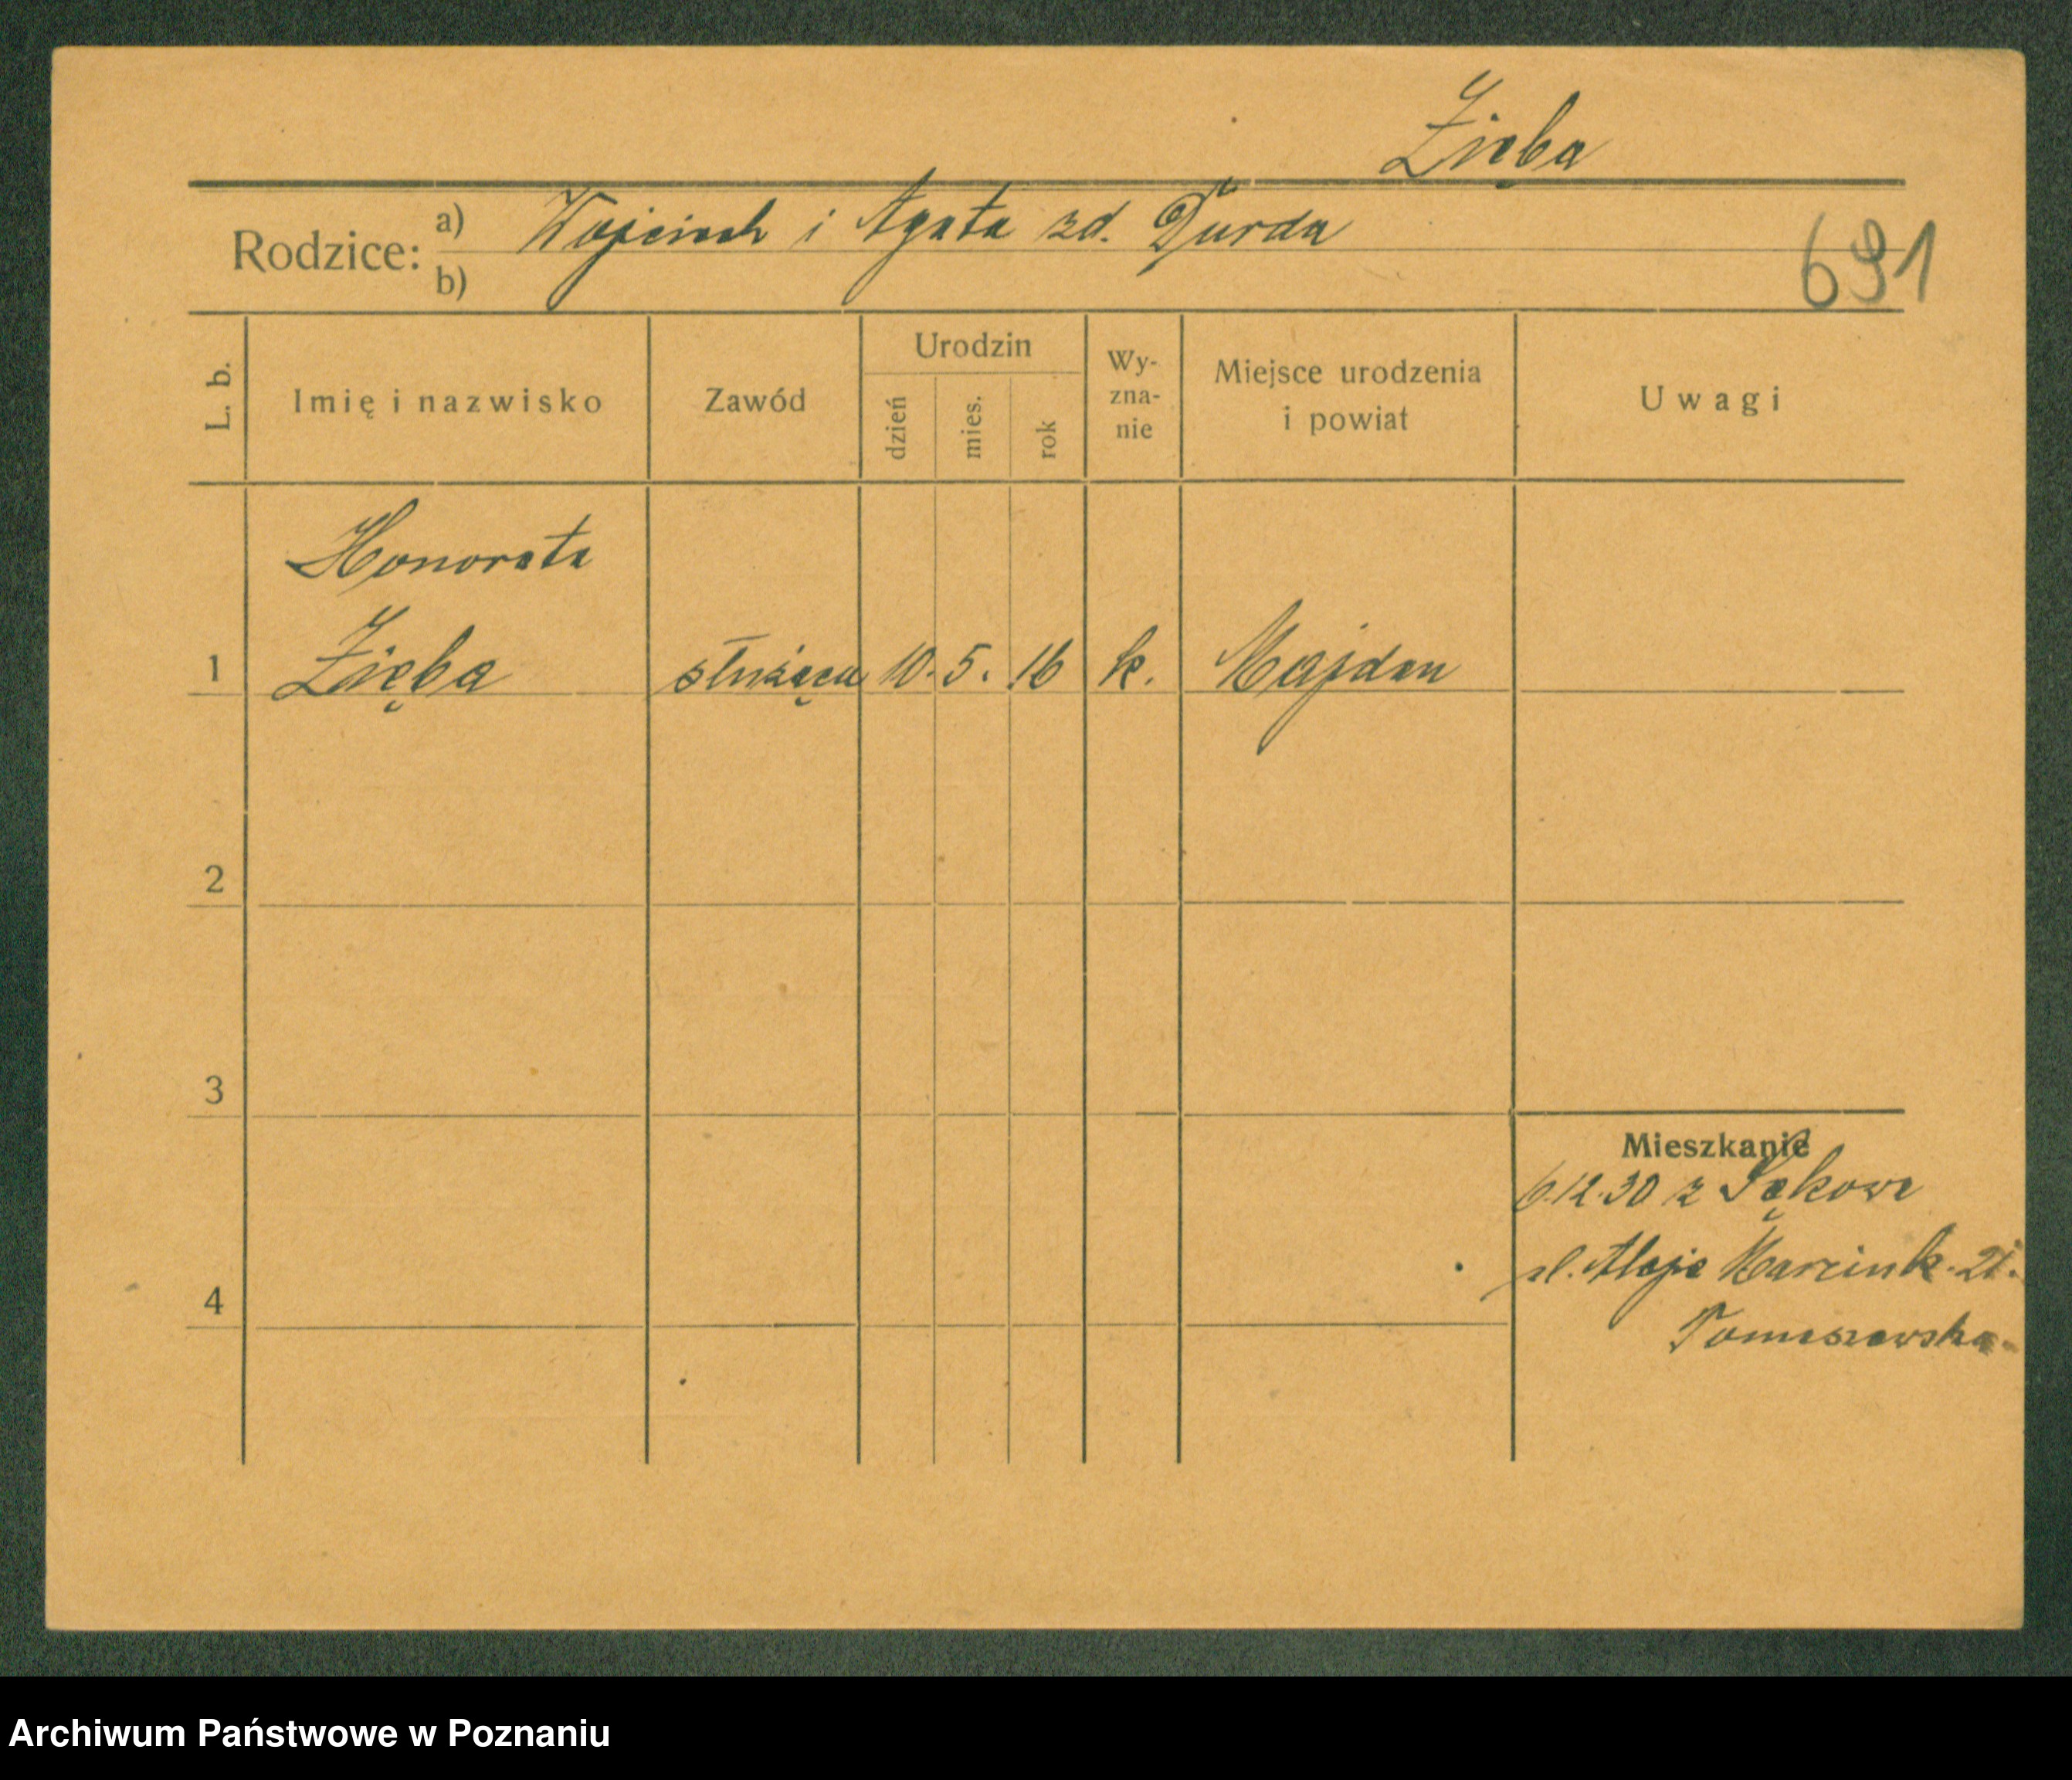 Zięba
Rodzice: a) Wojciech i Agata zd. Durda
b)
691
L. b. Imię i nazwisko Zawód Urodzin dzień mies. rok Wy-zna-nie Miejsce urodzenia i powiat Uwagi
Honorata
1 Zięba służąca 10. 5. 16 k. Majdan
2
3
Mieszkanie
6.12.30 z
Aleje Marcink. 21.
4
Tomaszewska
Archiwum Państwowe w Poznaniu